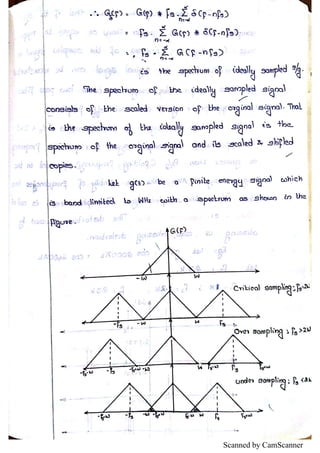 ∴ G_δ(f) = G(f) * fs Σ δ(f-nfs)
n=-∞
= fs Σ G(f) * δ(f-nfs)
n=-∞
= fs Σ G(f-nfs)
n=-∞
is the spectrum of ideally sampled s/g.
The spectrum of the ideally sampled signal
consists of the scaled version of the orginal signal. That
is the spectrum of the ideally sampled signal is the
spectrum of the orginal signal and its scaled & shifted
copies.
Let g(t) be a finite energy signal which
is band limited to WHz with a spectrum as shown in the
figure.
G(f)
-W W
Critical sampling; fs=2W
-fs -W W fs
Over sampling; fs>2W
-fs-W -fs -fs+W -W W fs-W fs fs+W
under sampling; fs<2W
-fs-W -fs -W W fs fs+W
Scanned by CamScanner